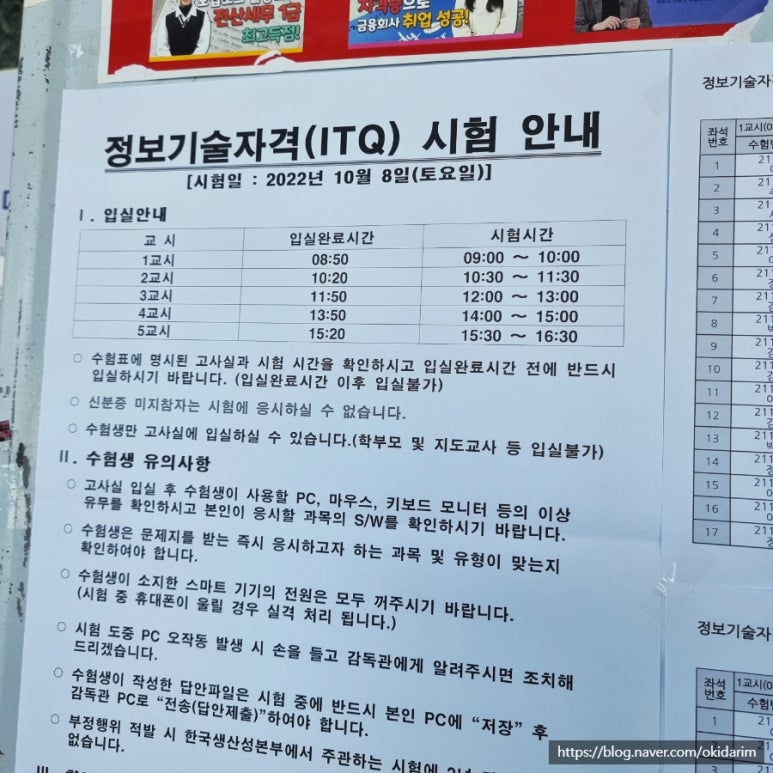 전산세무 1급
최고득점!
자격증으로
금융회사 취업 성공!
정보기술자격(ITQ) 시험 안내
[시험일 : 2022년 10월 8일(토요일)]
Ⅰ. 입실안내
교 시 입실완료시간 시험시간
1교시 08:50 09:00 ～ 10:00
2교시 10:20 10:30 ～ 11:30
3교시 11:50 12:00 ～ 13:00
4교시 13:50 14:00 ～ 15:00
5교시 15:20 15:30 ～ 16:30
○ 수험표에 명시된 고사실과 시험 시간을 확인하시고 입실완료시간 전에 반드시
입실하시기 바랍니다. (입실완료시간 이후 입실불가)
○ 신분증 미지참자는 시험에 응시하실 수 없습니다.
○ 수험생만 고사실에 입실하실 수 있습니다.(학부모 및 지도교사 등 입실불가)
Ⅱ. 수험생 유의사항
○ 고사실 입실 후 수험생이 사용할 PC, 마우스, 키보드 모니터 등의 이상
유무를 확인하시고 본인이 응시할 과목의 S/W를 확인하시기 바랍니다.
○ 수험생은 문제지를 받는 즉시 응시하고자 하는 과목 및 유형이 맞는지
확인하여야 합니다.
○ 수험생이 소지한 스마트 기기의 전원은 모두 꺼주시기 바랍니다.
(시험 중 휴대폰이 울릴 경우 실격 처리 됩니다.)
○ 시험 도중 PC 오작동 발생 시 손을 들고 감독관에게 알려주시면 조치해
드리겠습니다.
○ 수험생이 작성한 답안파일은 시험 중에 반드시 본인 PC에 “저장” 후
감독관 PC로 “전송(답안제출)”하여야 합니다.
○ 부정행위 적발 시 한국생산성본부에서 주관하는 시험에
없습니다.
정보기술자
좌석
번호
1교시
수험
1 21
2 21
3 21
4 21
5 21
6 21
7 211
8 211
9 211
10 211
11 211
12 211
13 211
14 211
15 211
16 211
17 211
정보기술자
좌석
번호
1교시
수험
1 211
2
3
https://blog.naver.com/okidarim